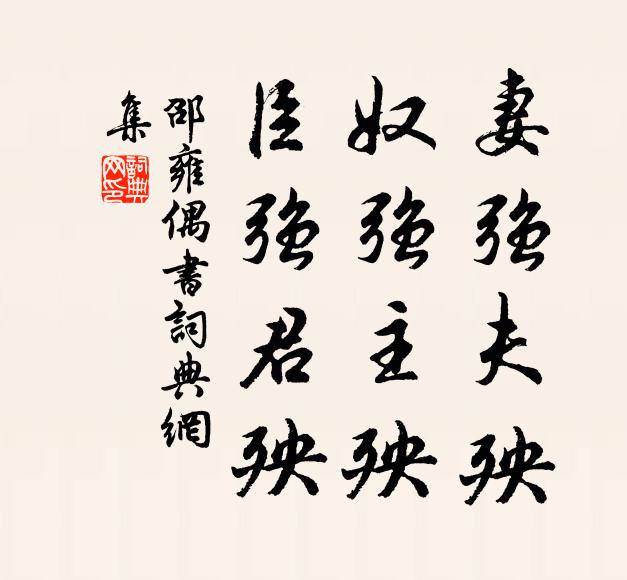 妻強夫殃
奴強主殃
臣強君殃
邵雍偶書詞典網
集
詞典
网印